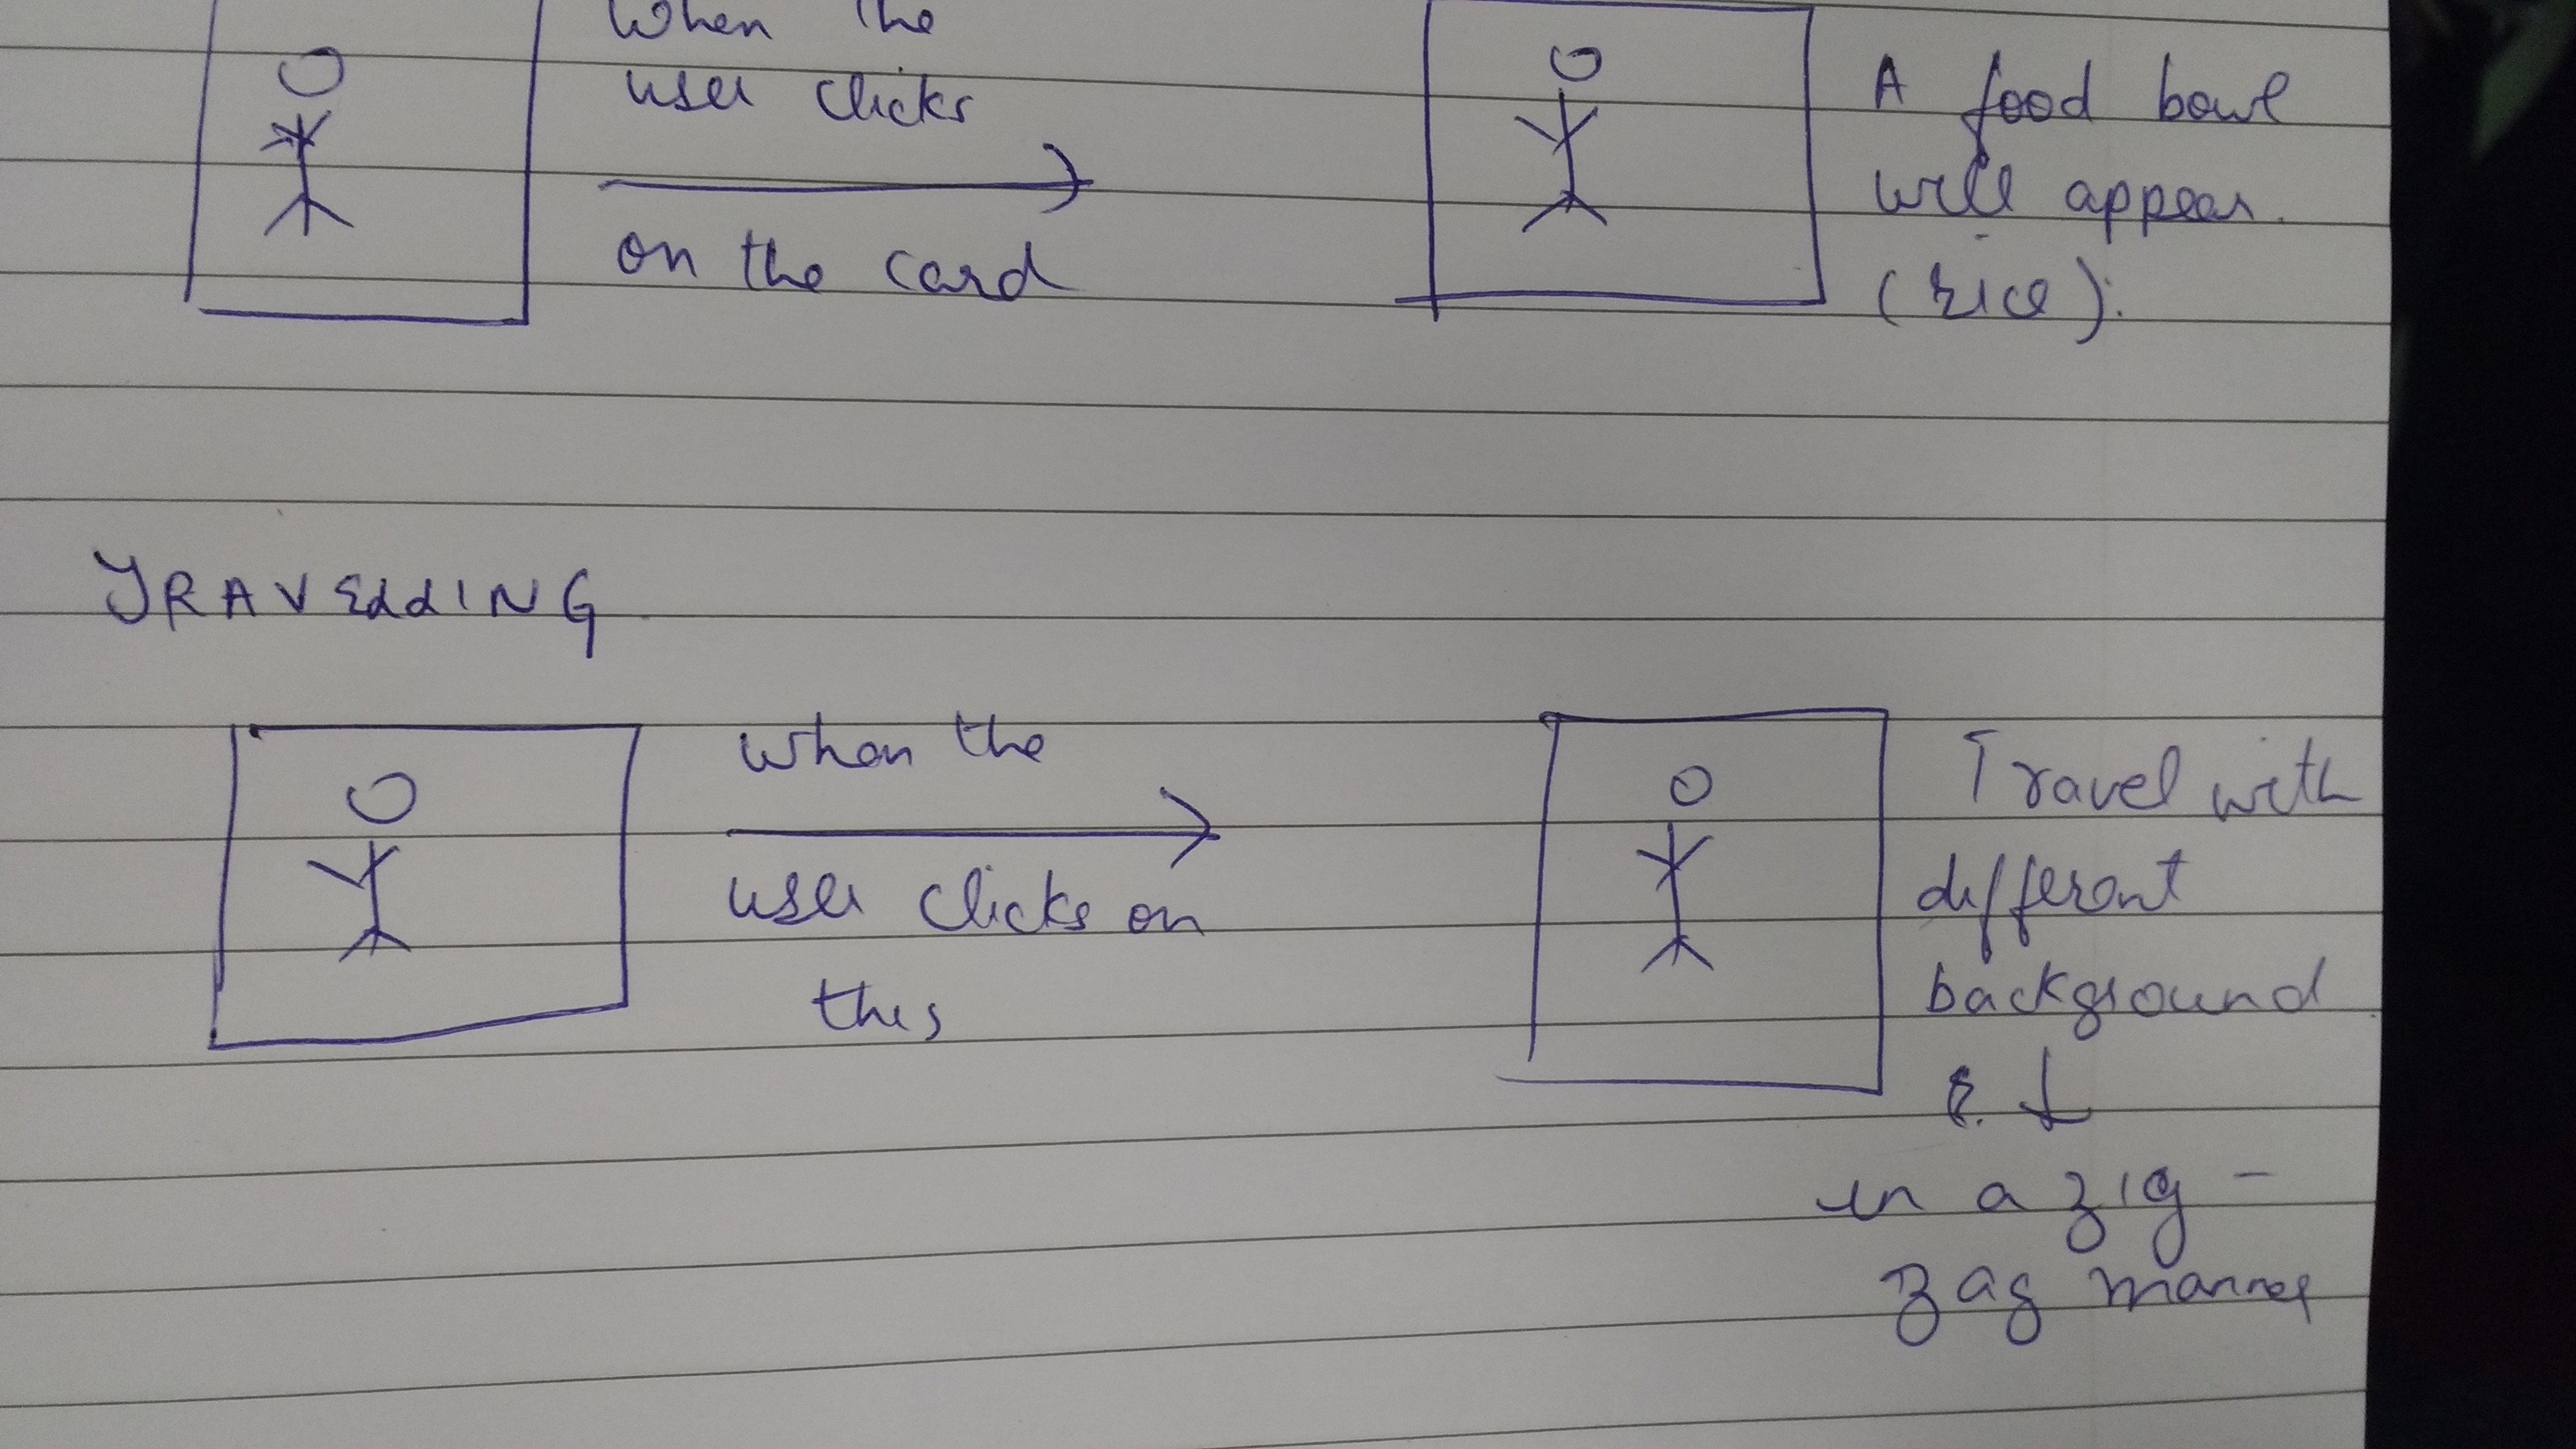 When the
user clicks
on the card
A food bowl
will appear.
(rice).
TRAVELLING
when the
user clicks on
this
Travel with
different
background
&
in a zig -
zag manner